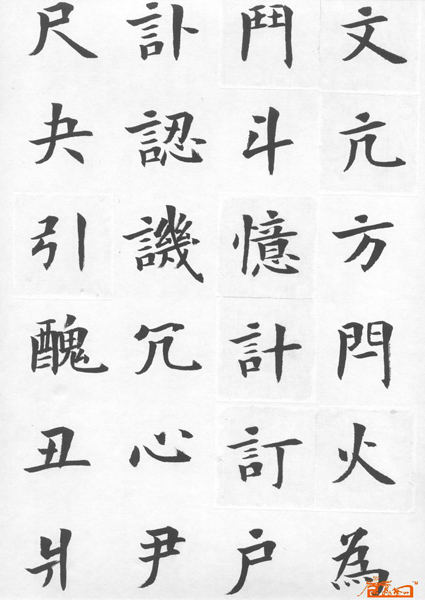 文亢方閂火為
鬥斗憶計訂户
訃認譏冗心尹
尺夬引醜丑爿